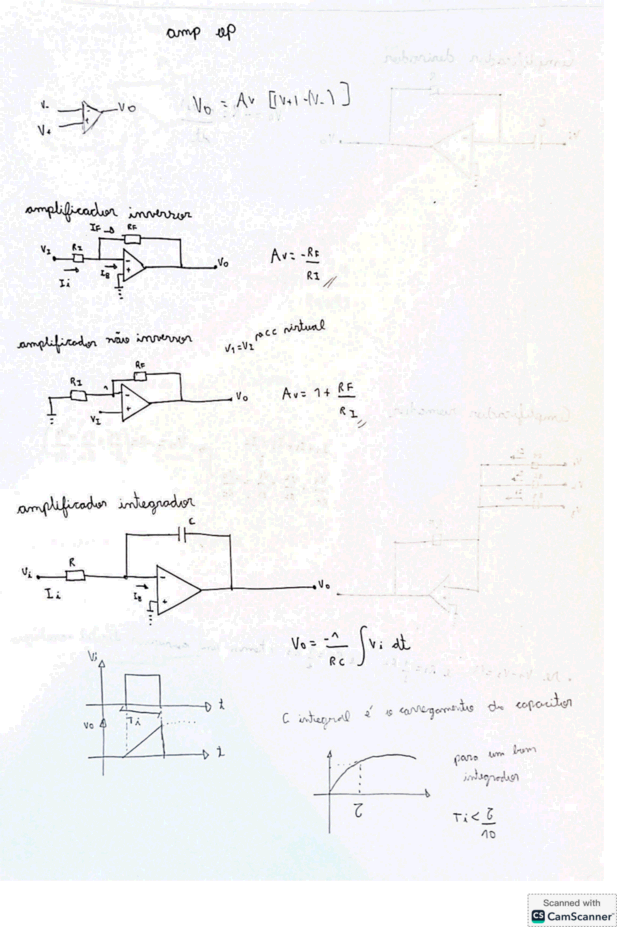 amp op
V-
V+
VO
Vo = Av [(V+) - (V-)]
amplificador inversor
IF → RF
VI RI
Ii
IB
Vo
Av = -RF
RI
amplificador não inversor
V1=VI → CC virtual
RI
RF
1
VI
Vo
Av = 1 + RF
RI
amplificador integrador
C
Vi R
Ii
IB
Vo
Vo = -1 ∫ Vi dt
RC
Vi
t
Ti
Vo
t
C integral é o carregamento do capacitor
τ
para um bom
integrador
Ti < τ
10
Scanned with
CS CamScanner